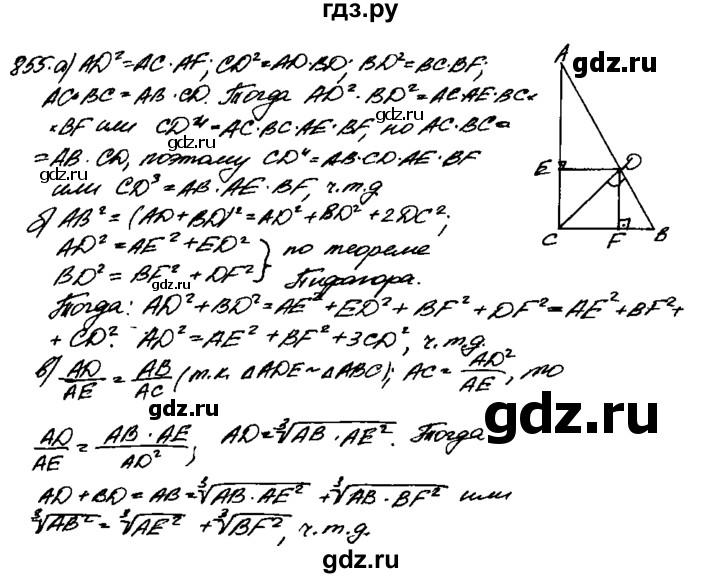 гдз.ру
855. а) AD² = AC · AF; CD² = AD · BD; BD² = BC · BF;
AC · BC = AB · CD. Тогда AD² · BD² = AC · AE · BC ×
× BF или CD⁴ = AC · BC · AE · BF, но AC · BC =
= AB · CD, поэтому CD⁴ = AB · CD · AE · BF
или CD³ = AB · AE · BF, ч.т.д
б) AB² = (AD + BD)² = AD² + BD² + 2DC²;
AD² = AE² + ED²
BD² = BF² + DF² } по теореме Пифагора.
Тогда: AD² + BD² = AE² + ED² + BF² + DF² = AE² + BF² +
+ CD². AD² = AE² + BF² + 3CD², ч.т.д.
в) AD/AE = AB/AC (т.к. △ADE ~ △ABC); AC = AD²/AE, то
AD/AE = AB · AE/AD²; AD = ∛(AB · AE²). Тогда
AD + BD = AB = ∛(AB · AE²) + ∛(AB · BF²) или
∛(AB²) = ∛(AE²) + ∛(BF²), ч.т.д.
A
E
D
C
F
B
gdz.ru
gdz.ru
gdz.ru
gdz.ru
gdz.ru
gdz.ru
gdz.ru
gdz.ru
gdz.ru
gdz.ru
gdz.ru